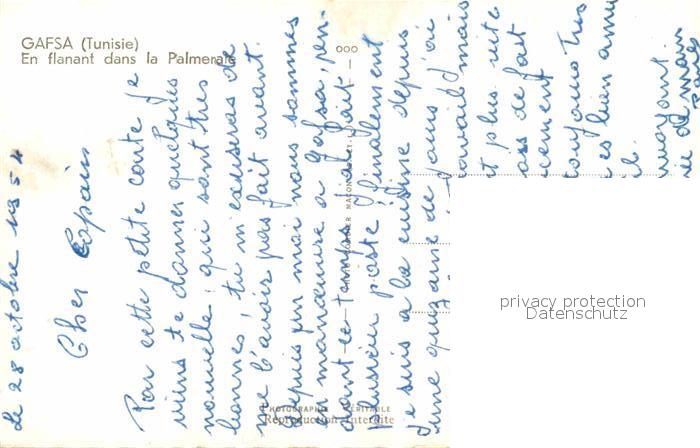 GAFSA (Tunisie)
En flanant dans la Palmeraie
Le 28 octobre 1954
Cher Copain
Par cette petite carte je
viens te donner quelques
nouvelle qui sont très
bonnes, tu m'excuseras de
ne l'avoir pas fait avant.
depuis un moi nous sommes
en manœuvre a Gafsa, pen-
dant ce temps j'ai fait
plusieur poste, finalement
je suis a la cuisine depuis
une quinzaine de jours j'ai
travail mais
plus vite
de fait
toujours très
bien
PHOTOGRAPHIE VÉRITABLE
Reproduction Interdite
privacy protection
Datenschutz